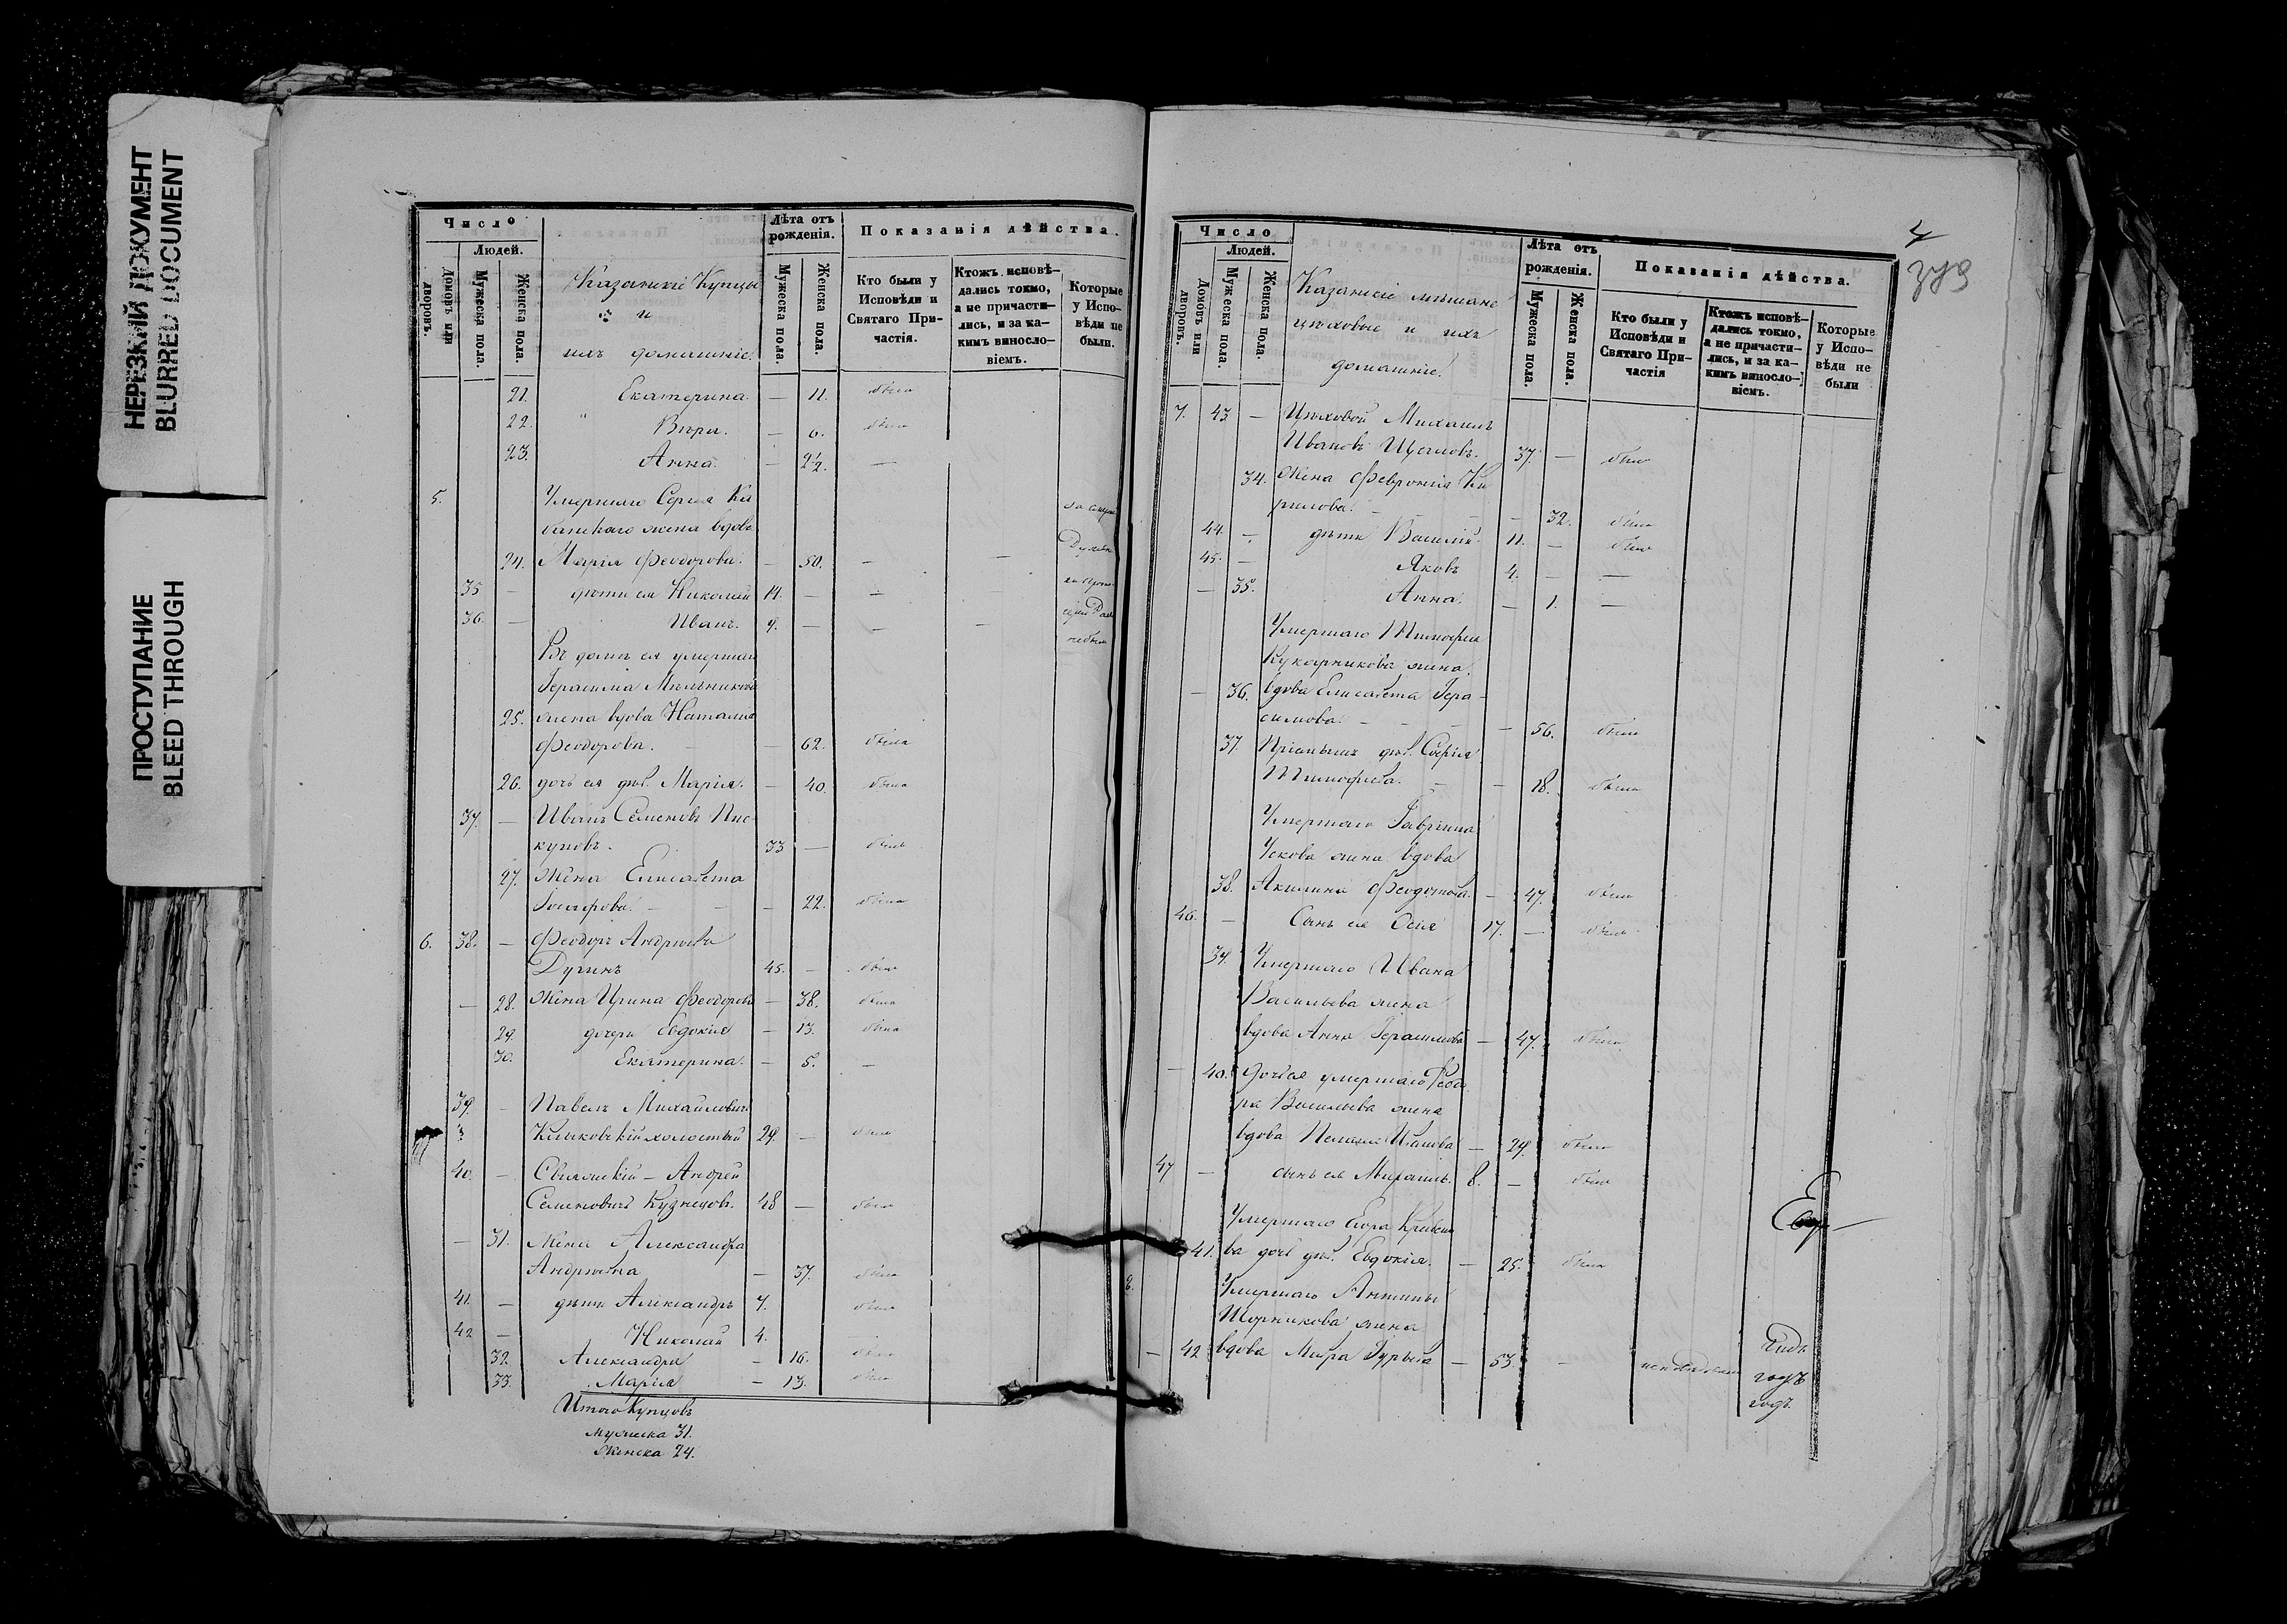 НЕРЕЗКИЙ ДОКУМЕНТ
BLURRED DOCUMENT
ПРОСТУПАНИЕ
BLEED THROUGH
Число
Людей.
Домовъ или дворовъ.
Мужеска пола.
Женска пола.
Казанскіе Купцы
и
ихъ домашніе.
Лѣта отъ рожденія.
Мужеска пола.
Женска пола.
Показанія дѣйства.
Кто были у Исповѣди и Святаго Причастія.
Ктожъ исповѣдались токмо, а не причастились, и за какимъ винословіемъ.
Которые у Исповѣди не были.
21. Екатерина. — 11. была
22. " Вѣра. — 6. была
23. Анна. — 2½. —
5. Умершаго Сергея
жена вдова
24. Марія Феодорова. — 50. —
35 — дѣти ея Николай 14. — —
36. — Иванъ. 9. — —
не были
Въ домѣ ея умершаго
Герасима Мельникова
25. жена вдова Наталія
Феодорова. — 62. была
26. дочь ея дѣв. Марія. — 40. была
37. — Иванъ Семеновъ Пис-
куновъ. 33 — былъ
27. Жена Елисавета
— 22. была
6. 38. — Феодоръ Андреевъ
Дугинъ 45. — былъ
— 28. Жена Ирина Феодорова — 38. была
29. дочери Евдокия — 13. была
30. Екатерина. — 5. —
39. — Павелъ Михайловичъ
холостый 29. — былъ
40. — Свіяжскій — Андрей
Семеновичъ Кузнецовъ. 48 — былъ
— 31. Жена Александра
Андреевна — 37. была
41. — дѣти Александръ 7. былъ
42 — Николай 4.
32. Александра — 16. была
33. Марія — 13. была
Итого Купцовъ
Мужеска 31.
Женска 24.
4
Число
Людей.
Домовъ или дворовъ.
Мужеска пола.
Женска пола.
Казанскіе мѣщане
цѣховые и ихъ
домашніе.
Лѣта отъ рожденія.
Мужеска пола.
Женска пола.
Показанія дѣйства.
Кто были у Исповѣди и Святаго Причастія
Ктожъ исповѣдались токмо, а не причастились, и за какимъ винословіемъ.
Которые у Исповѣди не были
7. 43 — Цѣховой Михаилъ
Ивановъ 37. — былъ
34. Жена Феврония Ки-
рилова. — — 32. была
44. — дѣти Василій. 11. — былъ
45. — Яковъ 4. — —
— 35. Анна. — 1. —
Умершаго Тимофея
Кукарникова жена
— 36. вдова Елисавета Гера-
симова. — — 56. была
37. дѣв. Софія
Тимофеева. — — 18. была
Умершаго Гавріила
Ускова жена вдова
38. Акилина Феодотова. — 47. была
46. — Сынъ ея Осія 17. — былъ
39. Умершаго Ивана
Васильева жена
вдова Анна Герасимова — 47. была
— 40. Дочь ея умершаго Феодо-
ра Васильева жена
вдова Пелагия Иванова — 29. была
47 — сынъ ея Михаилъ. 8. — былъ
Умершаго Егора
41. ва дочь дѣв. Евдокия. — 25. была
8. Умершаго Антипы
жена
— 42. вдова Гурьева — 53. —
годъ
годъ.